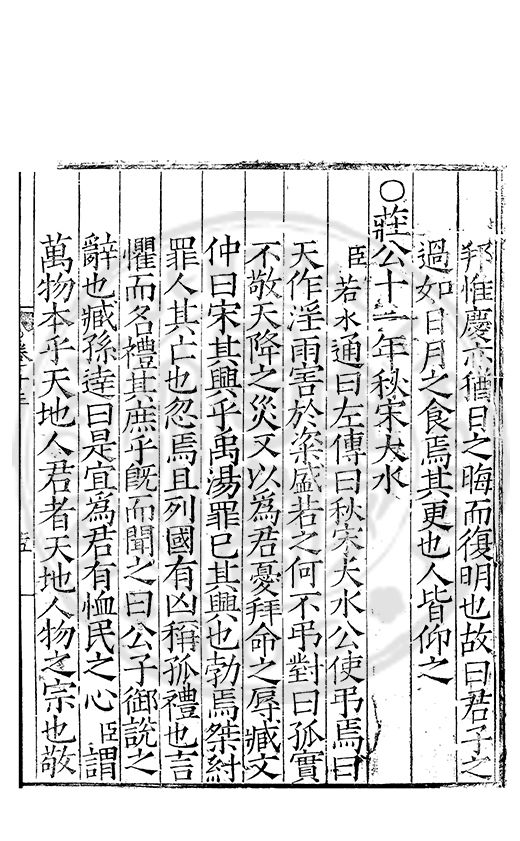 邦惟慶亦猶日之晦而復明也故曰君子之
過如日月之食焉其更也人皆仰之
○莊公十一年秋宋大水
臣若水通曰左傳曰秋宋大水公使弔焉曰
天作淫雨害於粢盛若之何不弔對曰孤實
不敬天降之災又以為君憂拜命之辱臧文
仲曰宋其興乎禹湯罪已其興也勃焉桀紂
罪人其亡也忽焉且列國有凶稱孤禮也言
懼而名禮其庶乎旣而聞之曰公子御說之
辭也臧孫逹曰是宜為君有恤民之心臣謂
萬物本乎天地人君者天地人物之宗也敬
卷十三
五